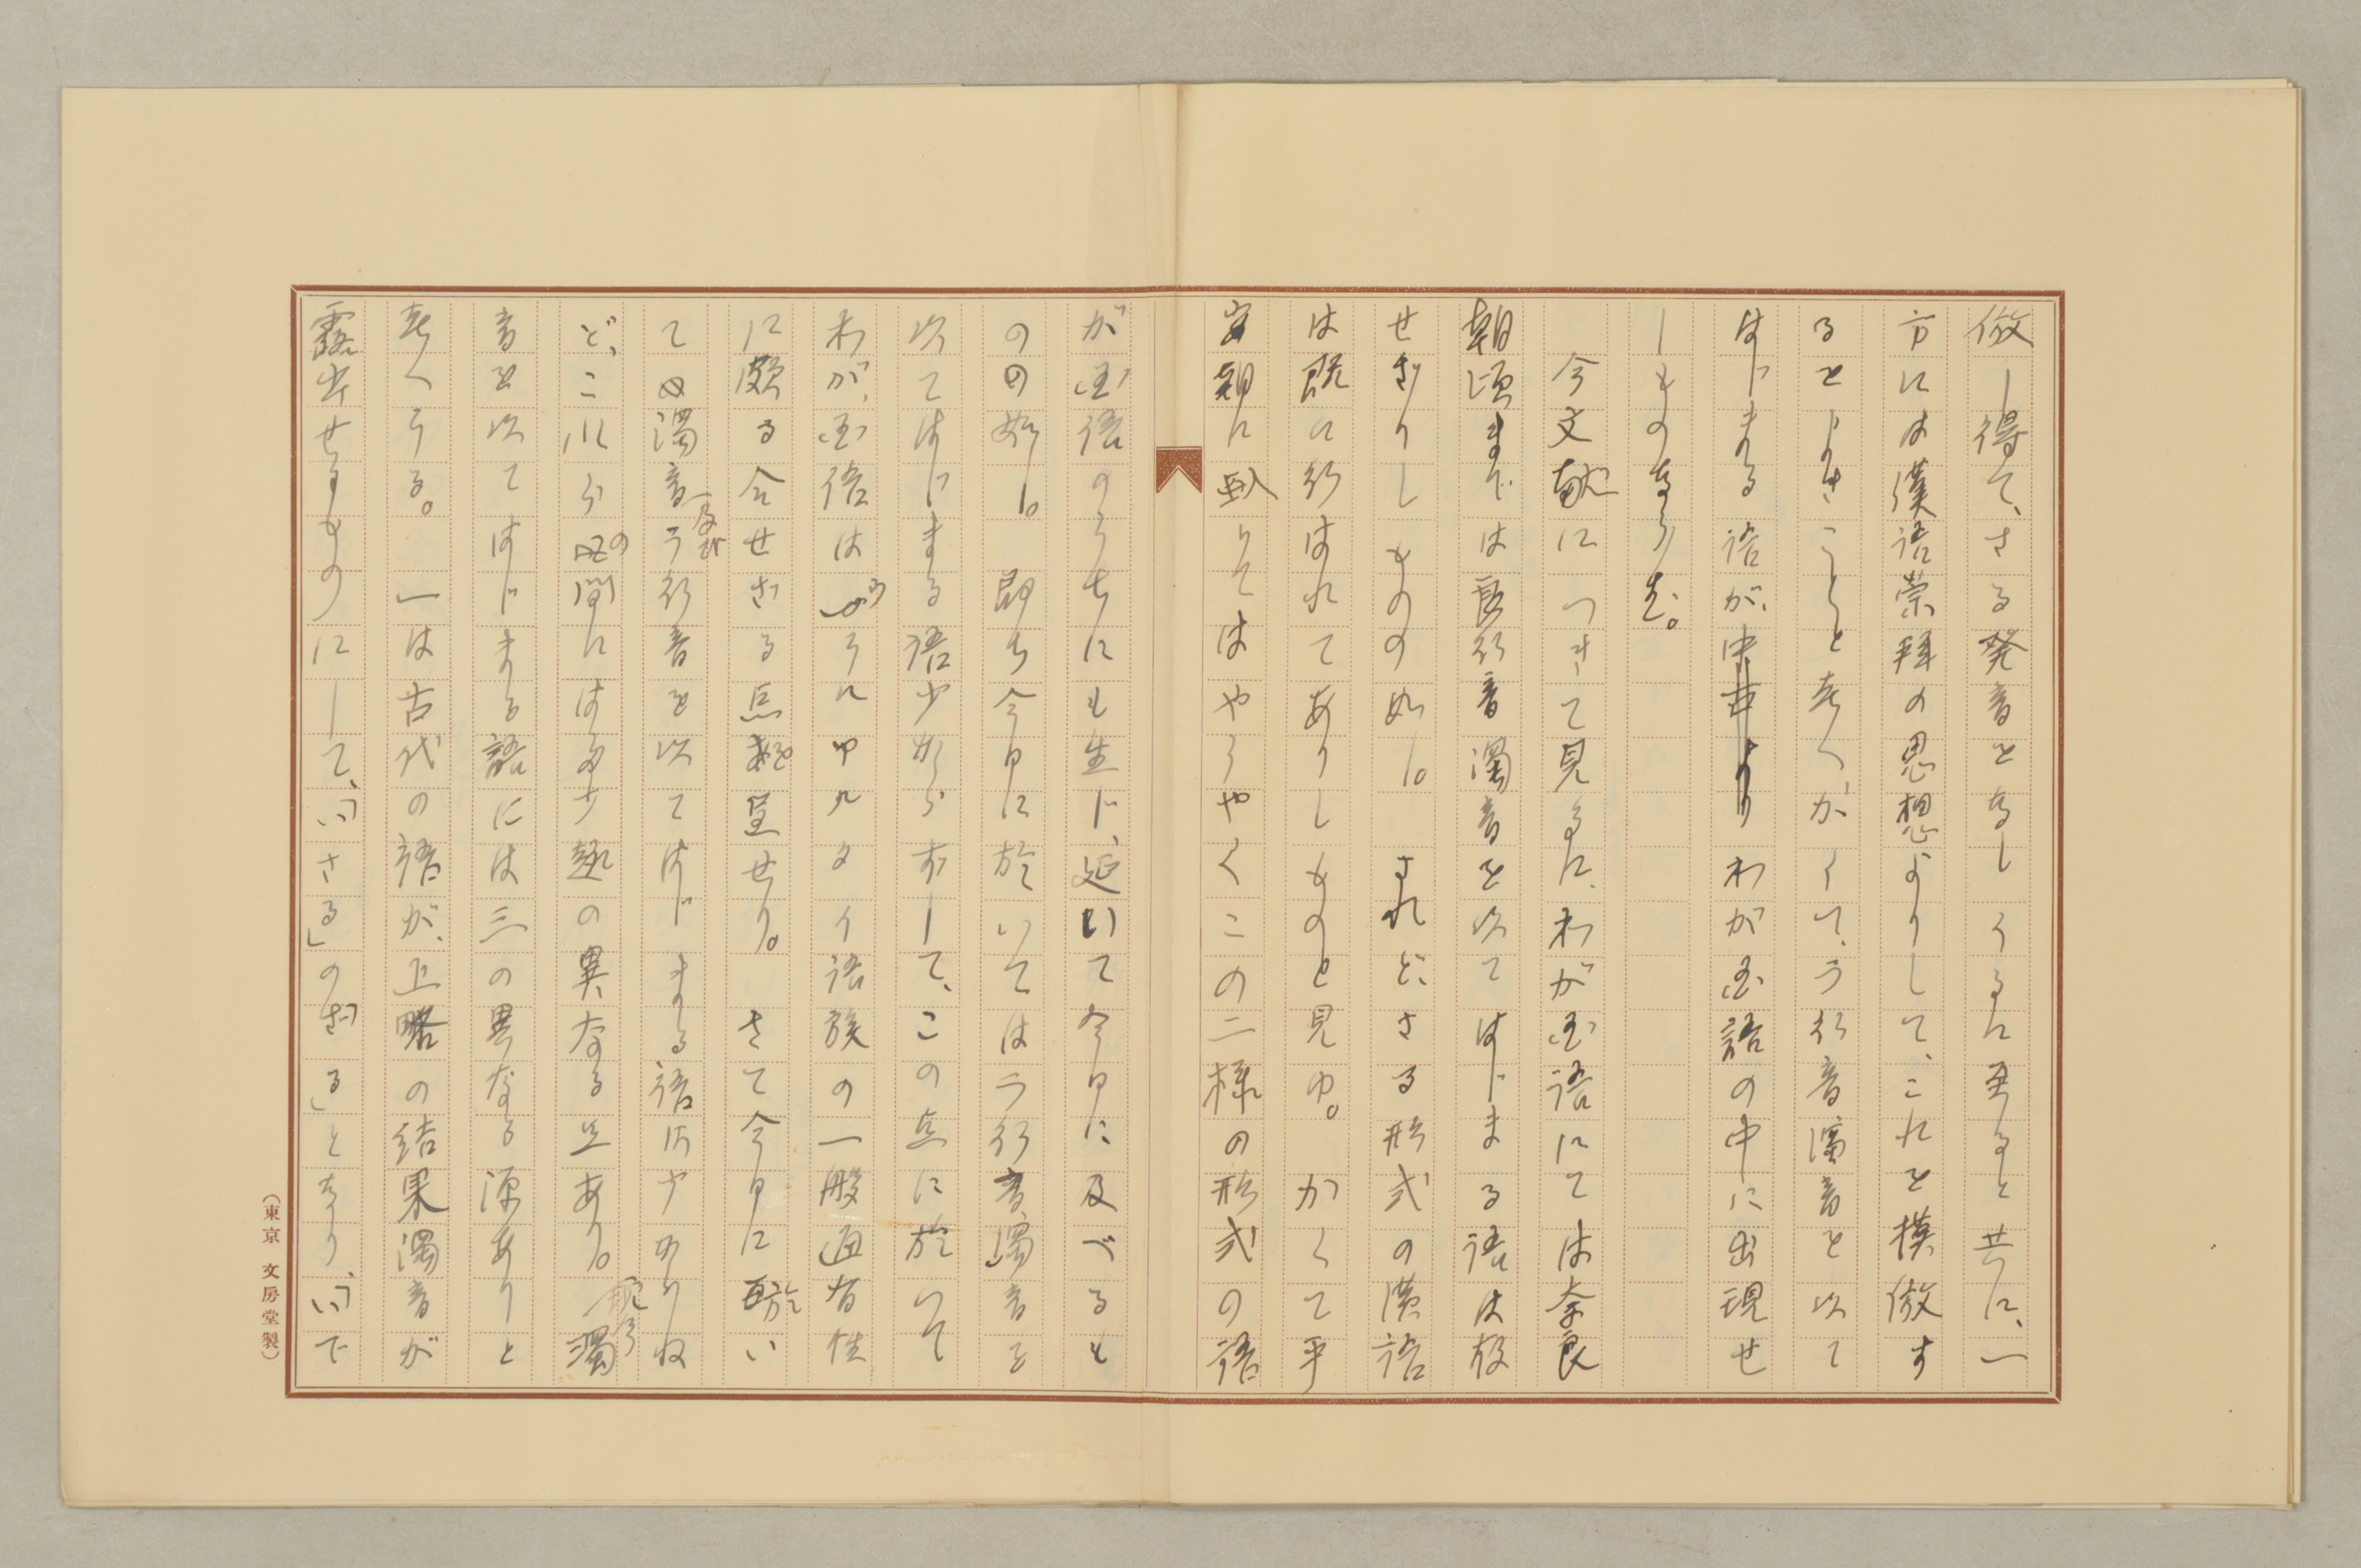 倣し得て、さる発音をなしうるに至ると共に、一
方には漢語崇拝の思想よりして、これを模倣す
るをよきことゝ考へ、かくて、ラ行音濁音を以て
はじまる語が、わが国語の中に出現せ
しものならむ。
今文献につきて見るに、わが国語にては奈良
朝頃までは良行音濁音を以てはじまる語は存
せざりしものの如し。されど、さる形式の漢語
は既に行はれてありしものと見ゆ。かくて平
安朝に至りてはやうやくこの二様の形式の語
が国語のうちにも生じ、延いて今日に及べるも
のの如し。即ち今日に於いてはラ行音、濁音を
以てはじまる語少からずして、この点に於いて
わが国語はウラルアルタイ語族の一般通有性
に頗る合せざる点を呈せり。さて今日に於い
て濁音及びラ行音を以てはじまる語は少からね
ど、これらの間には多少趣の異なる点あり。現今濁
音を以てはじまる語には三の異なる源ありと
考へうる。一は古代の語が、上略の結果濁音が
露出せるものにして、「いさる」の「ざる」となり、「いで
(東京 文房堂製)